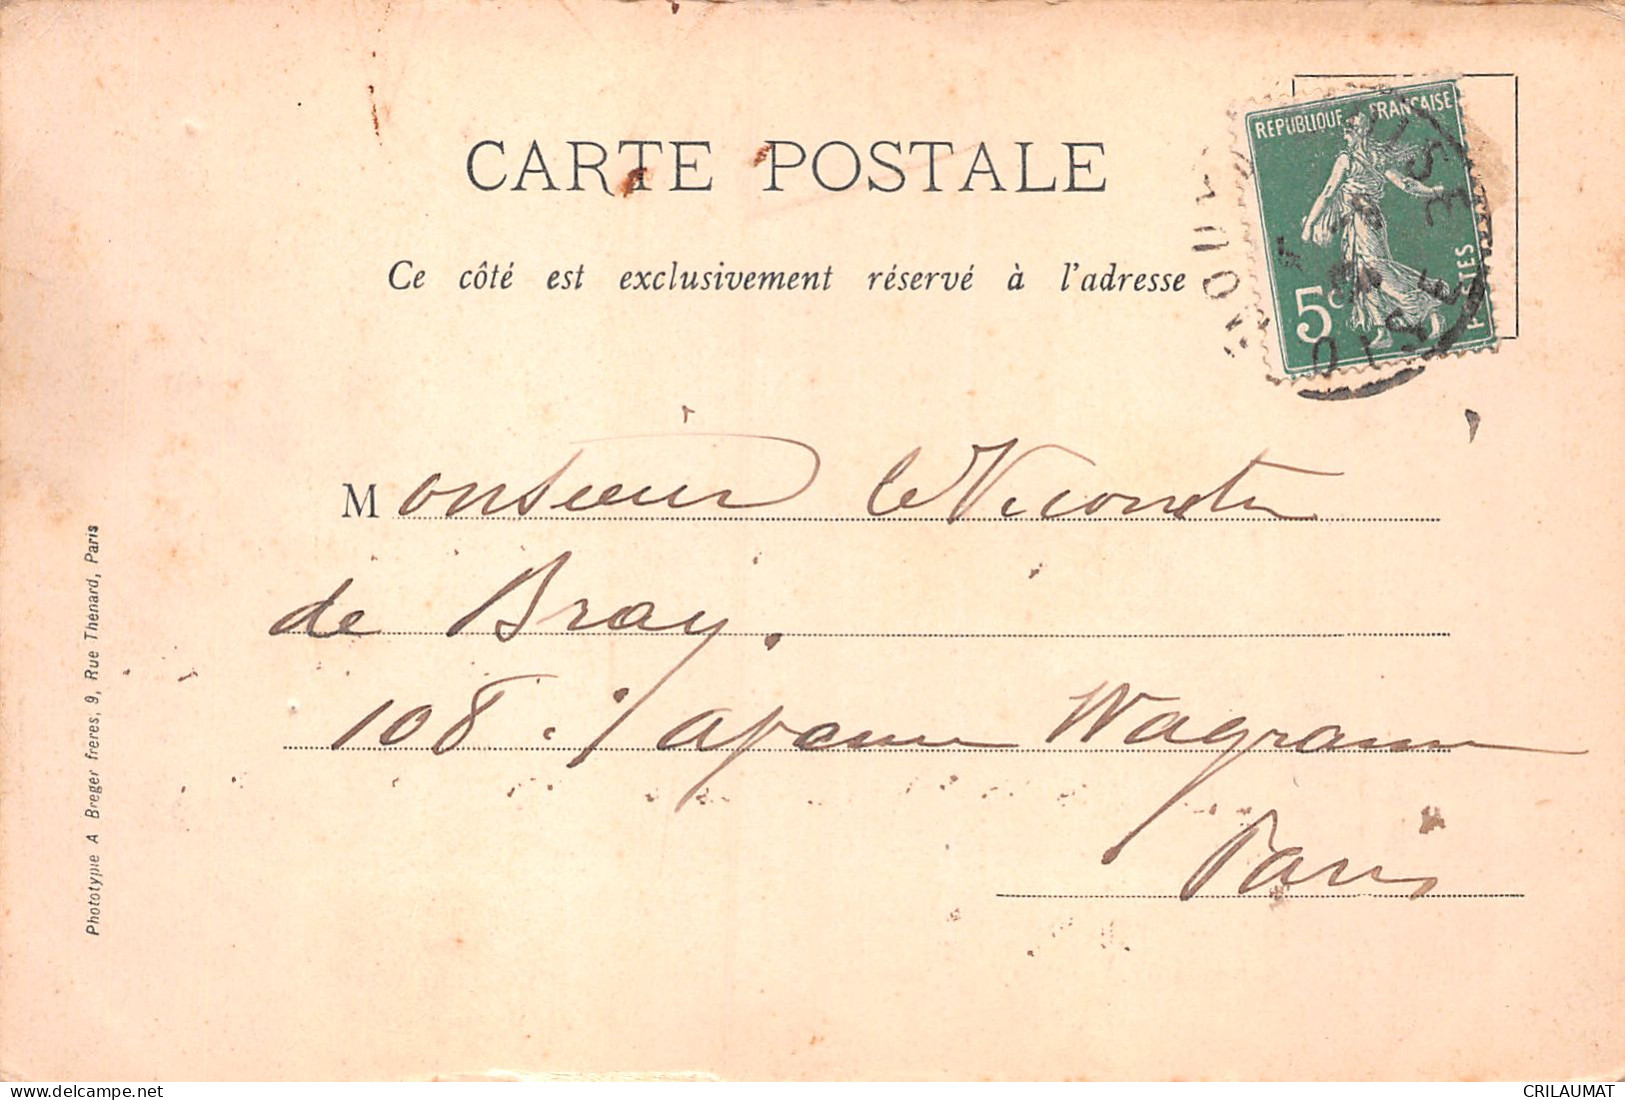 CARTE POSTALE
Ce côté est exclusivement réservé à l'adresse
REPUBLIQUE FRANÇAISE
5c
POSTES
Monsieur le Vicomte
de Bray.
108. avenue Wagram
Paris
Phototypie A Breger freres, 9, Rue Thenard, Paris
www.delcampe.net
CRILAUMAT